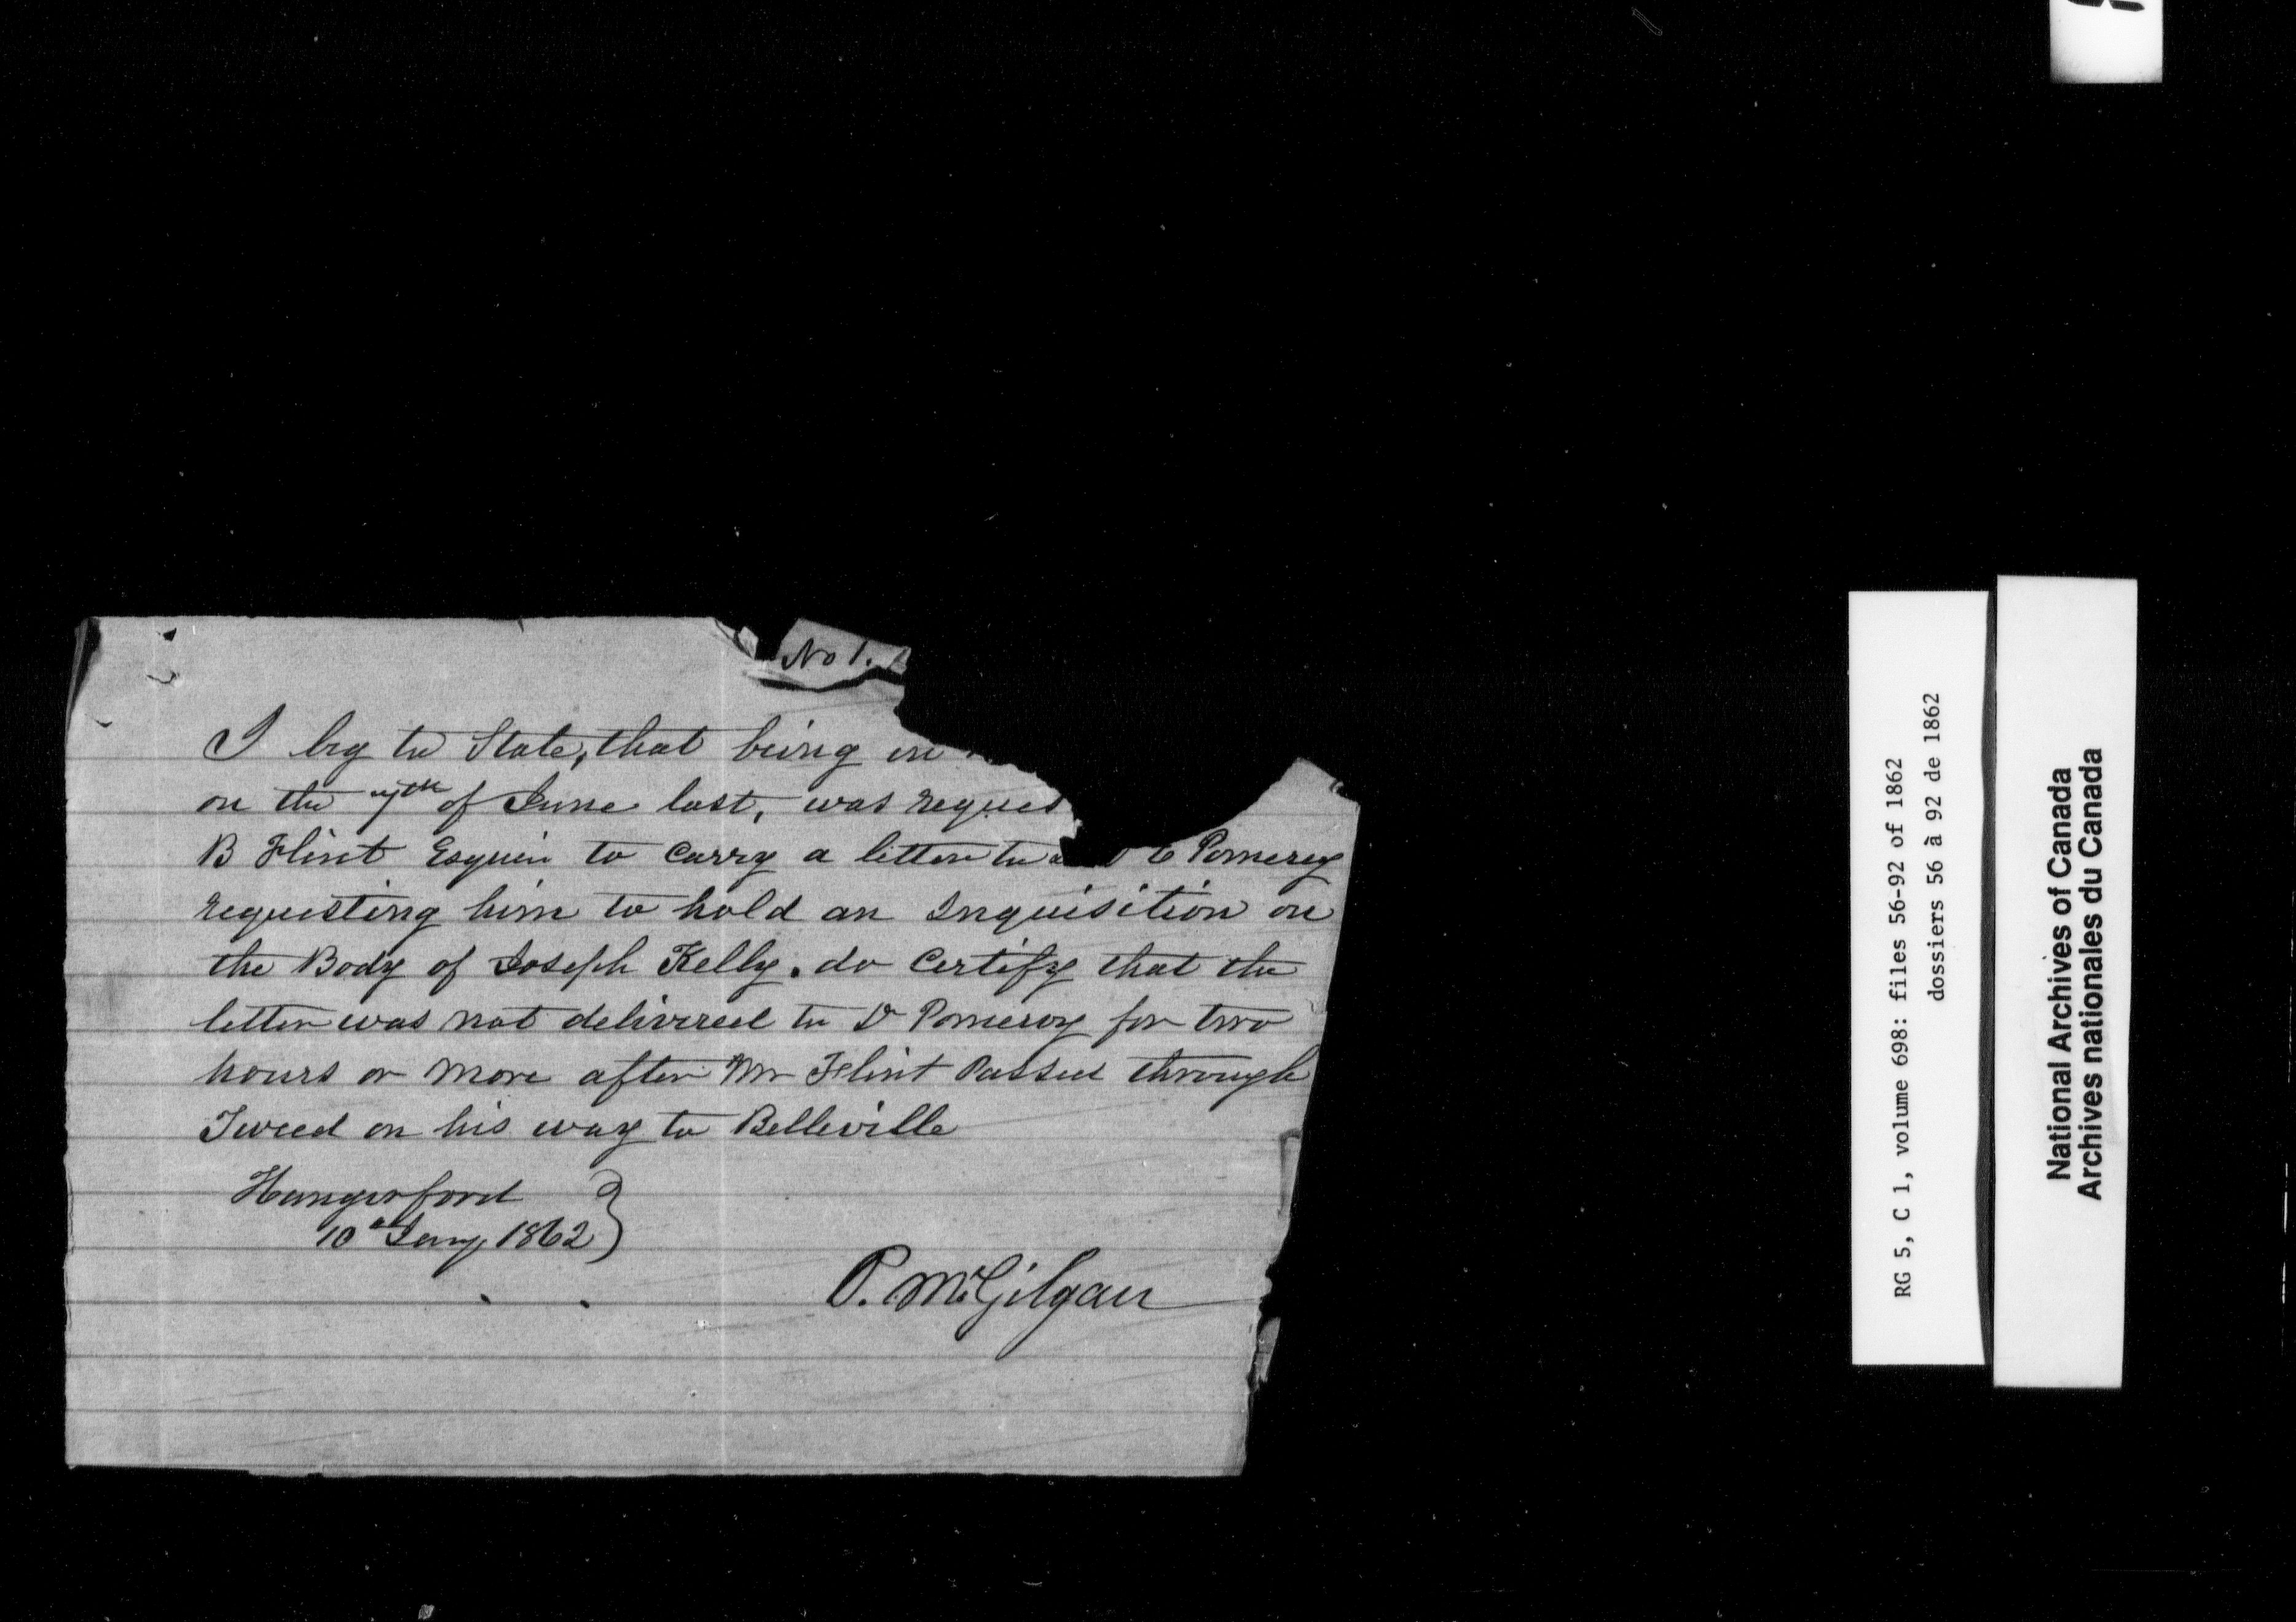 No 1.
I beg to State, that being in
on the 7th of June last, was reques
B Flint Esquire to Carry a letter to Pomeroy
requesting him to hold an Inquisition on
the Body of Joseph Kelly. do Certify that the
letter was not delivered to Dr Pomeroy for two
hours or more after Mr Flint Passed through
Tweed on his way to Belleville
Hungerford
10th Jany 1862
P. McGilgan
RG 5, C 1, volume 698: files 56-92 of 1862
dossiers 56 à 92 de 1862
National Archives of Canada
Archives nationales du Canada